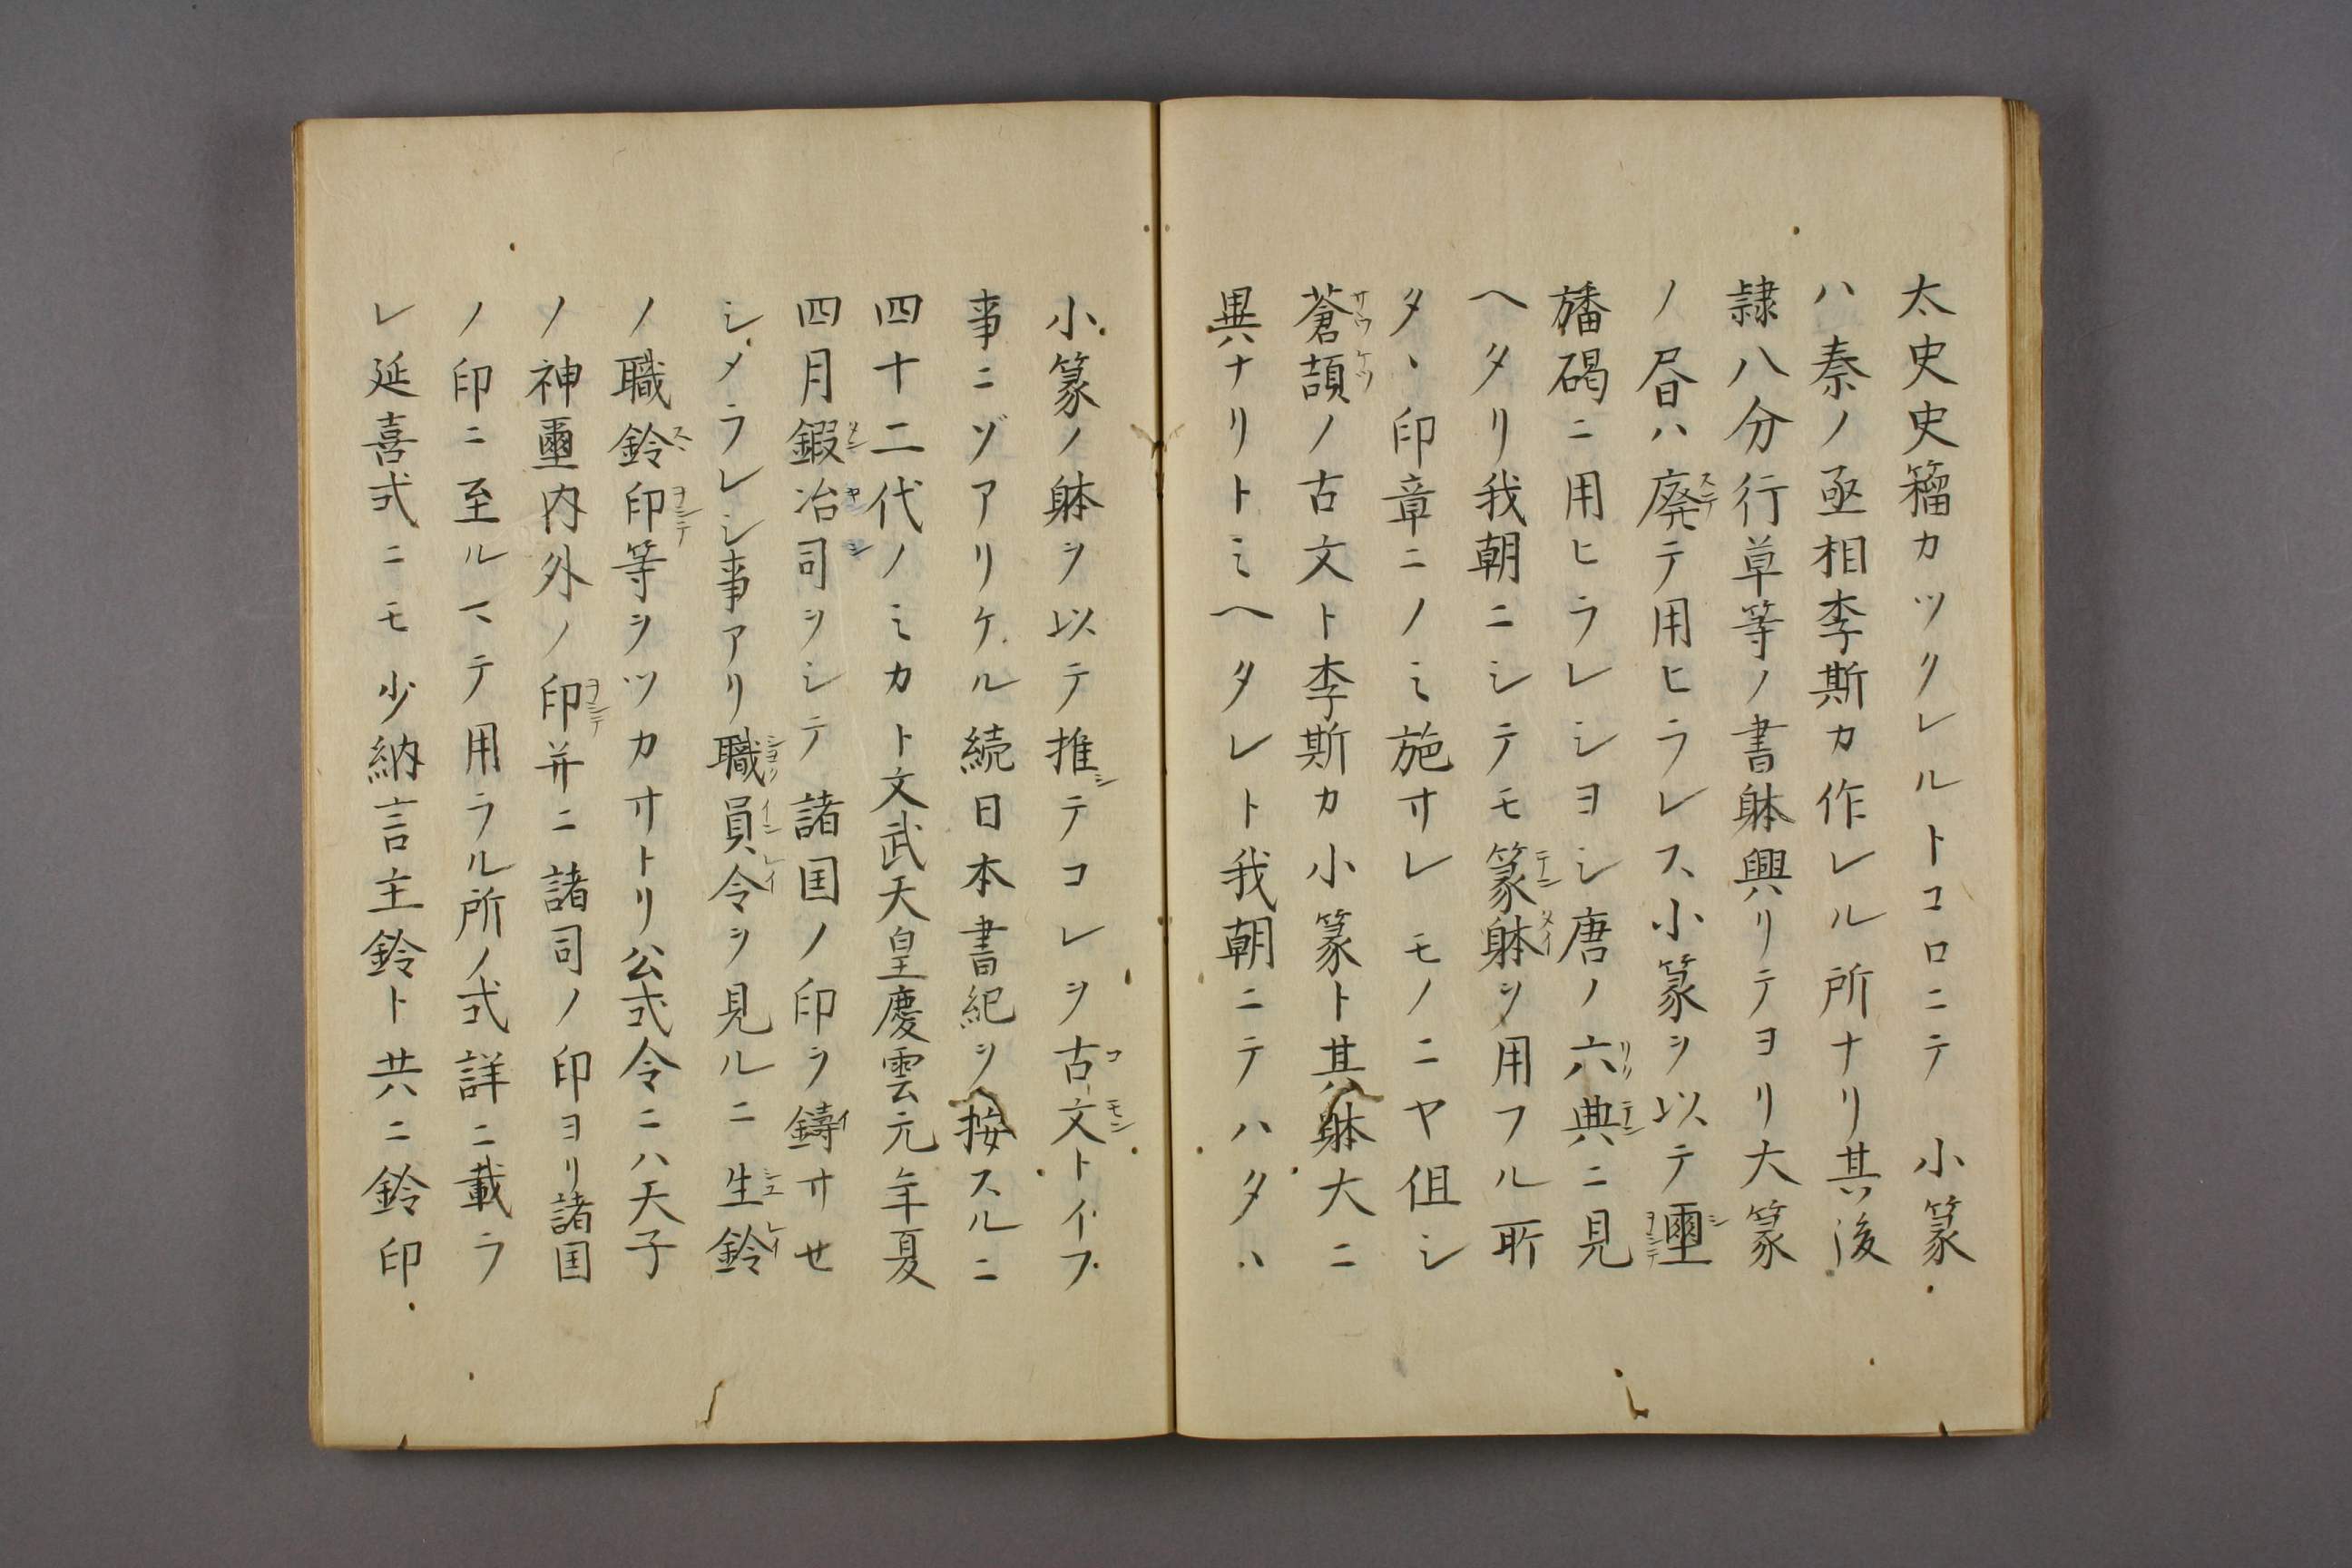 太史史籀カツクレルトコロニテ 小篆
ハ秦ノ丞相李斯カ作レル所ナリ其後
隷八分行草等ノ書躰興リテヨリ大篆
ノ昏ハ廃テ用ヒラレス小篆ヲ以テ璽
旛碣ニ用ヒラレシヨシ唐ノ六典ニ見
ヘタリ我朝ニシテモ篆躰ヲ用フル所
タヽ印章ニノミ施サレモノニヤ但シ
蒼頡ノ古文ト李斯カ小篆ト其躰大ニ
異ナリトミヘタレト我朝ニテハタヽ
小篆ノ躰ヲ以テ推テコレヲ古文トイフ
事ニゾアリケル続日本書紀ヲ按スルニ
四十二代ノミカト文武天皇慶雲元年夏
四月鍜冶司ヲシテ諸国ノ印ヲ鋳サセ
シメラレシ事アリ職員令ヲ見ルニ生鈴
ノ職鈴印等ヲツカサトリ公式令ニハ天子
ノ神璽内外ノ印并ニ諸司ノ印ヨリ諸国
ノ印ニ至ルマテ用ラル所ノ式詳ニ載ラ
レ延喜式ニモ少納言主鈴ト共ニ鈴印